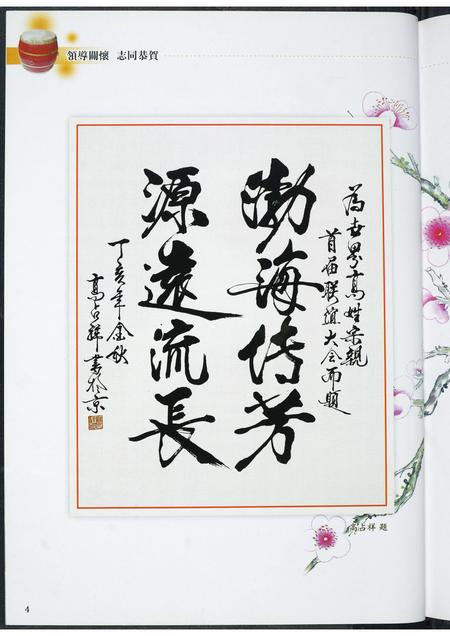 領導關懷 志同恭賀
為世界高姓宗親
首届联誼大会而題
渤海传芳
源遠流長
丁亥年金秋
高占祥書於京
高占祥 題
4